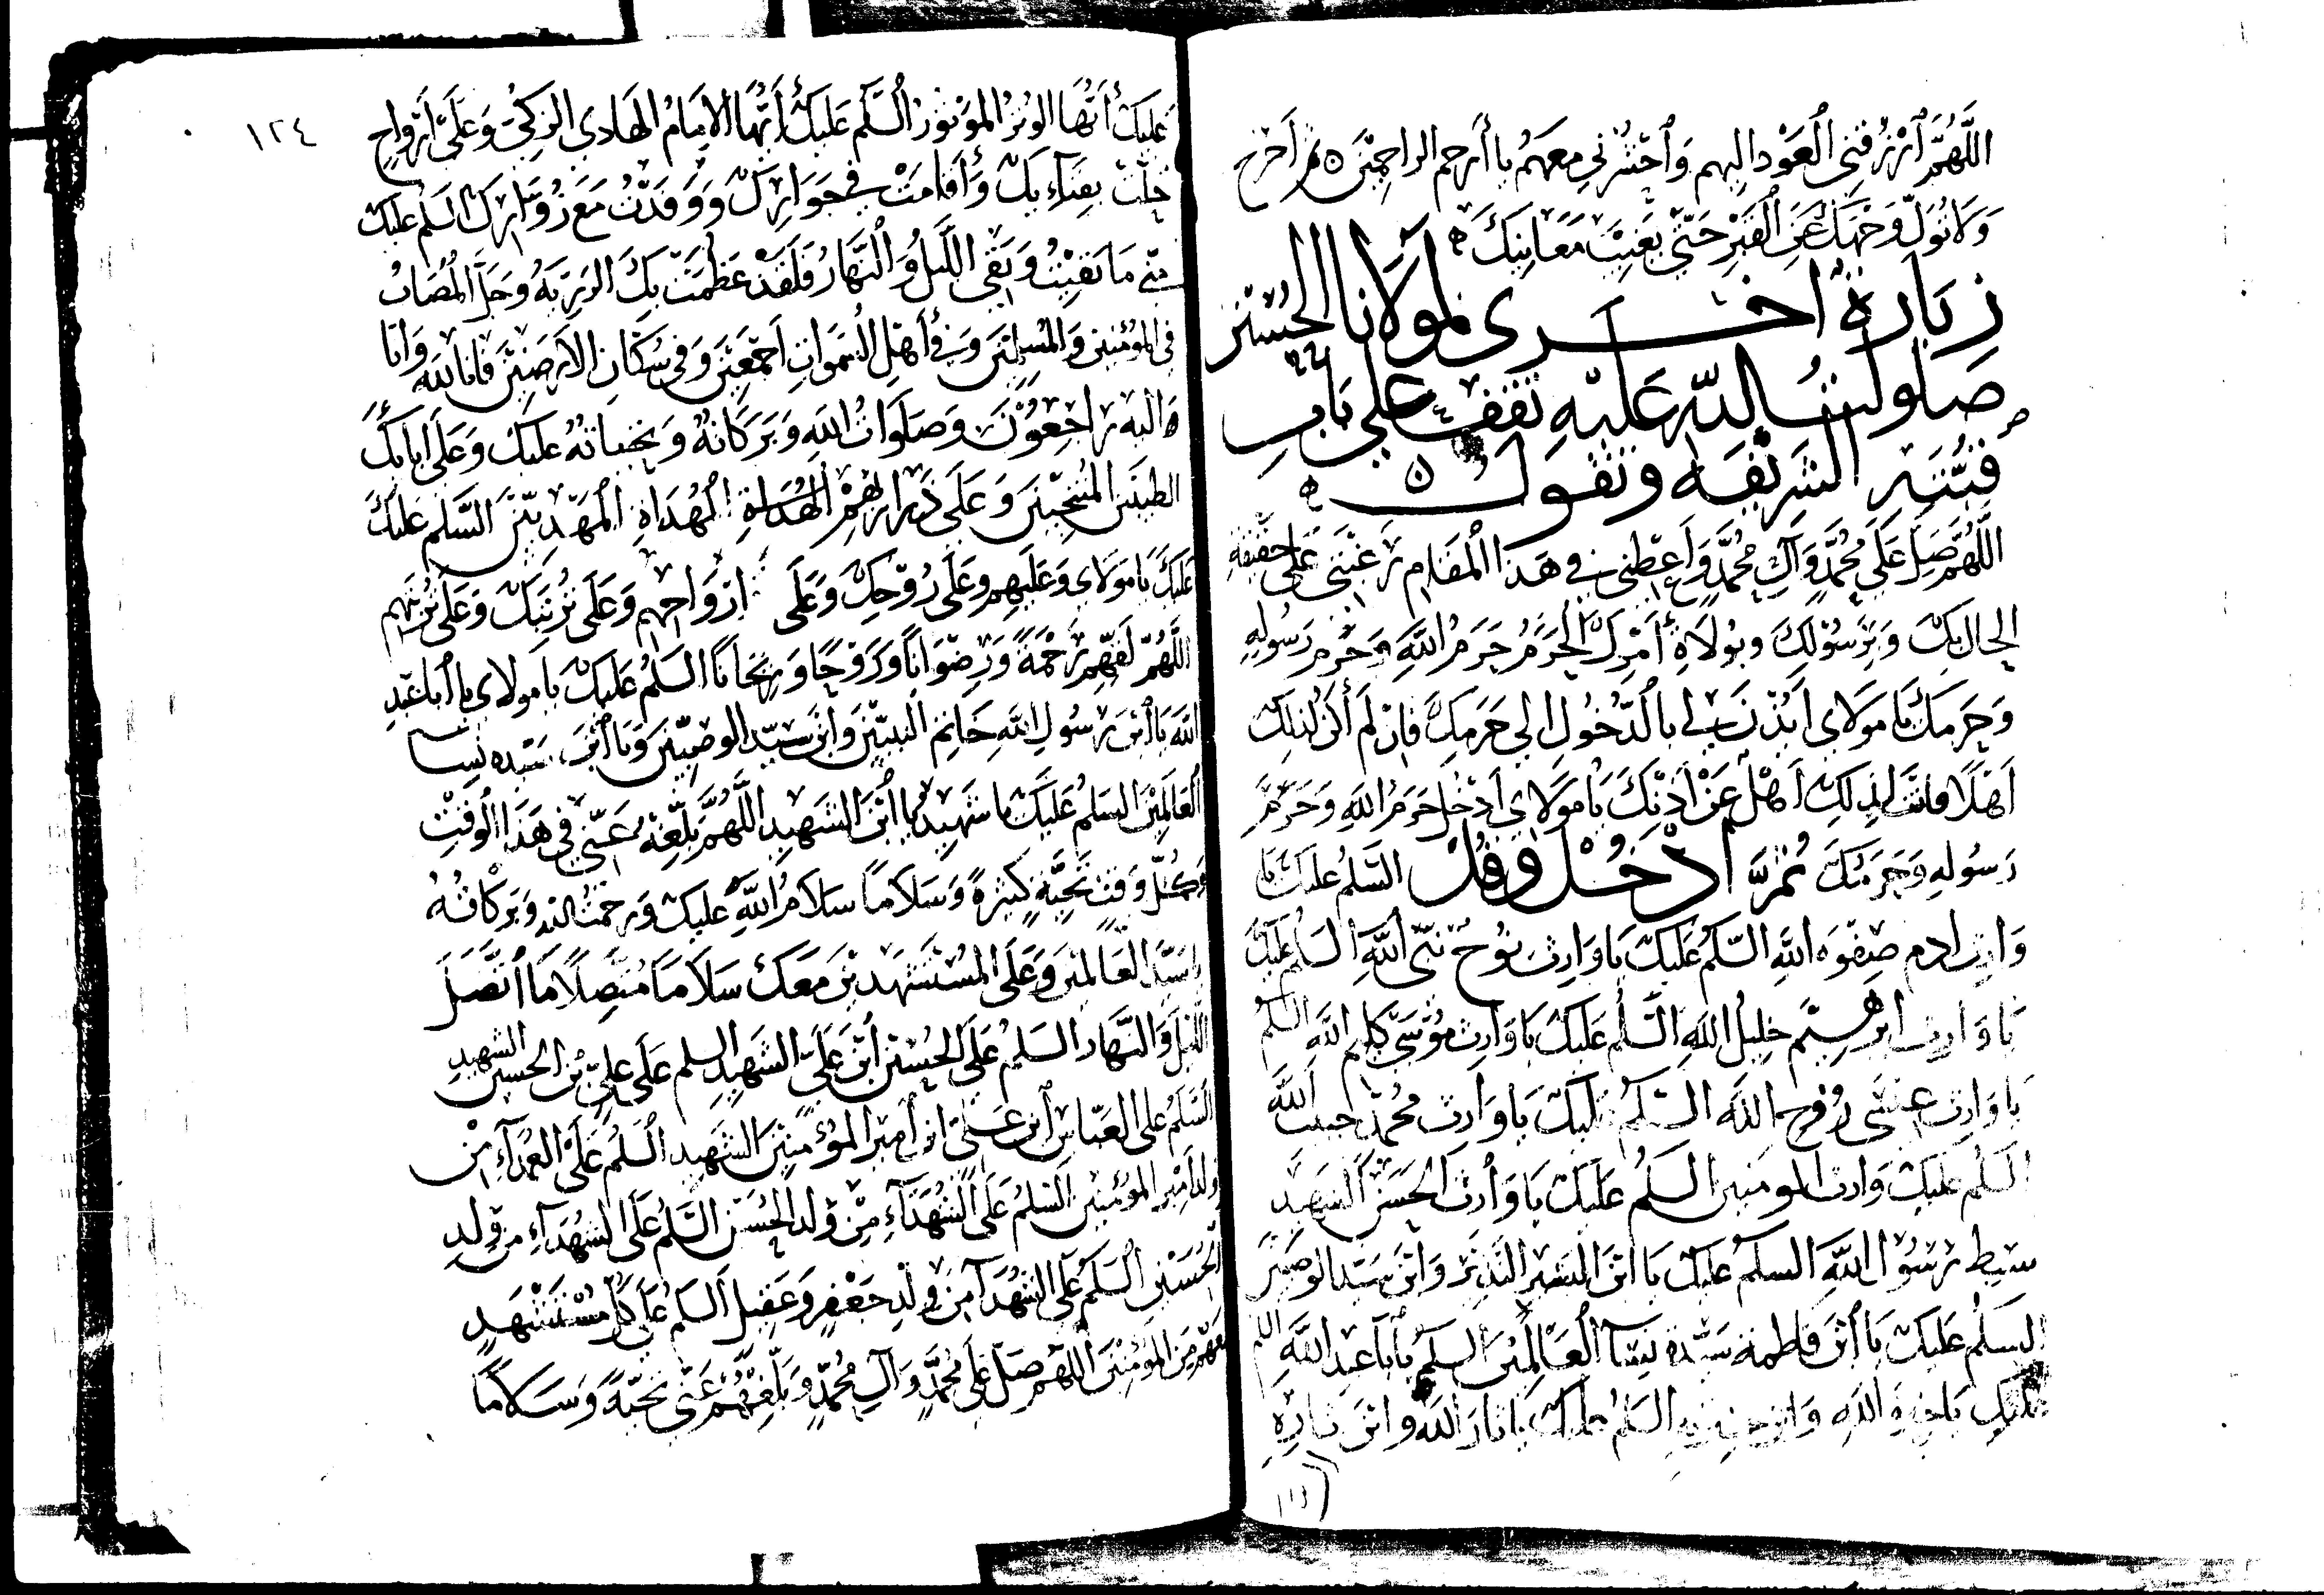 اللَّهُمَّ ارْزُقْنِي الْعَوْدَ اليهم وَاحْشُرْنِي مَعَهُمْ يا أَرحم الراحِمِيْنَ ثم اَخرج
وَلَا تُوَلِّ وَجْهَكَ عَنِ الْقَبْرِ حَتّى يَغِيْبَ مُعَايِنَتِكَ
زِيَارة اخـرى لمولَانا الحُسَيْن
صلوات الله عَلَيْهِ تقف على بَابِ
قُبَّتِهِ الشَّرِيْفَه وتقول
اللَّهُمَّ صَلِّ عَلَى مُحَمَّدٍ وَآلِ مُحَمَّدٍ وَاَعْطِنِي في هَذا الْمَقَامِ رَغْبَتِي عَلى حَقِيْقَةِ
بِكَ وَبِرَسُوْلِكَ وبِوُلَاةِ أَمْرِكَ الْحَرَمُ حَرَمُ اللَّهِ وَحَرَمُ رَسُولِهِ
وَحَرَمُكَ يَا مَوْلَاي اَتَأْذَنُ لي بالدُّخُولِ الي حَرَمِكَ فَاِنْ لَمْ أَكُنْ لِذلِكَ
اَهْلًا فانتَ لذلِكَ اَهْلٌ عَنْ اِذْنِكَ يَا مَوْلَاي اَدْخُلُ حَرَمَ اللَّهِ وَحَرَمَ
رَسُولِهِ وَحَرَمَكَ ثُمَّ اُدْخُـلْ وقُلْ السَّلَمُ عَلَيْكَ يَا
وَارِثَ ادم صِفْوَه اللَّهِ السَّلَمُ عَلَيْكَ يَا وَارِثَ نُوْحٍ نَبِّي اللَّهِ السَّلَمُ عَلَيْكَ
يَا وَارِثَ اِبْرَهِيْمَ خليل اللَّهِ السَّلَمُ عَلَيْكَ يَا وَارِثَ مُوْسَى كليم اللَّه السَّلَمُ
يَا وَارِثَ عِيْسَى رُوْحِ اللَّه السَّلَمُ عَلَيْكَ يَا وَارِثَ مُحَمَّدٍ حبيب اللَّه
السَّلَم عَلَيْكَ وَارث المومنين السَّلمُ عَلَيْكَ يَا وَارِثَ الْحَسَنِ الشَهِيْد
سِبط رَسُوْلِ اللَّهِ السلمُ عَلَيْكَ يَا ابْنَ البَشِيْر النَّذِيْرِ وَابْنَ سَيّد الوصِيّينَ
السلَمُ عَلَيْكَ يَا ابْنَ فَاطِمَةَ سَيِّدَة نِسَآ الْعَالَمِيْنَ السلَمُ يا أَبَا عَبْد اللَّهِ السلم
عَلَيْكَ يَا خِيَرَةَ اللَّهِ وَابْن خِيَرَتِهِ السَّلَمُ عَلَيْكَ يَا ثَارَ اللَّهِ وابْنَ ثَارِهِ
١٢٤
عَلَيْكَ أَيُّهَا الوِتْرُ الْمَوْتُوْرُ السَّلَمُ عَلَيْكَ أَيُّهَا الْاِمَامُ الْهَادِي الزَكِيُّ وَعَلَى اَرْوَاحٍ
حَلَّتْ بِفِنَاءِيكَ وَأَقَامَتْ فِي جَوَارِكَ وَوَفَدَتْ مَعَ زُوَّارِكَ السَّلَمُ عَلَيْكَ
مِنّي مَا بَقِيْتُ وَبَقِي اللَّيْلُ وَالنَّهَارُ فَلَقَدْ عَظُمَتْ بِكَ الرَزِيَّهُ وَجَلَّ الْمُصَابُ
فِي الْمُؤمِنِيْنَ وَالْمُسْلِمِيْنَ وَفِي أَهْلِ السَّمَوَاتِ اَجْمَعِيْنَ وَفِي سُكَّانِ الْاَرَضِيْنَ فَانا لِلَّهِ وَانا
اليه رَاجِعُوْنَ وَصَلَوَاتُ اللَّهِ وَبَرَكَاتُهُ وَتَحِيَّاتُهُ عَلَيْكَ وَعَلَى ابَائِكَ
الطَيِّبِينَ الْمُنْتَجَبِيْنَ وَعَلَى ذَرَارِيْهِمْ الْهُدَاةِ الْهُدَاةِ الْمَهْدِيِّيْنَ السَّلَمُ عَلَيْكَ
عَلَيْكَ يَا مَوْلَاي وَعَلَيْهِم وعَلَى رُوْحِكَ وَعَلَى اَرْوَاحِهِم وَعَلَى تُرْبَتِكَ وَعَلَى تُرْبَتِهِم
اللَّهُمَّ لَقِّهِم رَحْمَةً وَرِضْوَانًا وَرَوْحًا وَرَيْحَانًا السَلَمُ عَلَيْكَ يَا مَولَاي يَا اَبَا عَبْدِ
اللَّهِ يَا ابْنَ رَسُوْلِ اللَّهِ خَاتِمِ النَّبِيِّيْنَ وَابْنَ سَيِّد الْوَصِيِّيْنَ وَيَا ابْنَ سَيّده نِسَآ
الْعَالَمِيْنَ السَلَمُ عَلَيْكَ يا شَهِيْدُ يا ابْنَ الشَهِيدِ اللَّهُمَّ بَلِّغْهُ عَنِّي فِي هَذَا الْوَقْتِ
وَكُلِّ وَقْتٍ تَحِيَّةً كَثِيْرَةً وَسَلَامًا سَلَامُ اللَّهِ عَلَيْكَ وَرَحْمَتُ اللهِ وَبَرَكَاتُهُ
يا سَيِّدَ الْعَالَمِيْنَ وَعَلَى الْمُسْتَشْهَدِيْنَ مَعَكَ سَلَامًا مُتَّصِلًا مَا اتَّصَلَ
اللَّيْلُ وَالنَّهَارُ السَلَمُ عَلَى الْحُسَيْنِ ابْنِ عَلَيِّ الشَهِيْدِ السلمُ عَلَى عَلِيِّ بْنِ الحسين الشهيدِ
السَّلَمُ عَلَى الْعَبَّاسِ ابْنِ عَلِيٍّ ابن اَمِيْرِ الْمُؤمِنِيْنَ الشَهِيد السَلَمُ عَلَى الشُهَدَآءِ مِنْ
ولد اَمِيْرِ الْمُؤْمِنِيْنَ السَلَمُ عَلَى الشُهَدَآءِ مِنْ وُلْدِ الْحَسَن السَّلَمُ عَلَى الشُهَدَآءِ مِنْ وُلْدِ
الْحُسَيْنِ السَلَمُ عَلَى الشُهَدَآ مِنْ وُلْدِ جَعْفَرٍ وَعَقِيْلٍ السَلَمُ عَلَى كُلِّ مُسْتَشْهَدٍ
مَعَهُمْ مِنَ الْمُؤمِنِيْنَ اللَّهُمَّ صَلِّ عَلَى مُحَمَّدٍ وَآلِ مُحَمَّدٍ وَبَلِّغْهُمْ عَنِّي تَحِيَّةً وَسَلَامًا